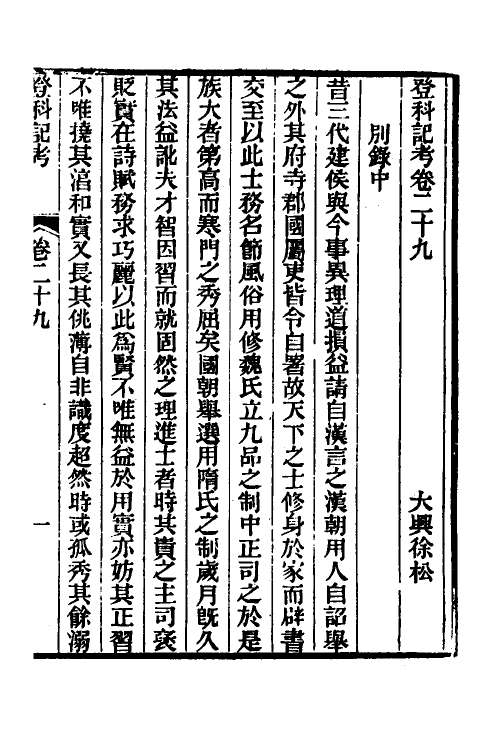 登科記考卷二十九
大興徐松
別錄中
昔三代建侯與今事異理道損益請自漢言之漢朝用人自詔舉
之外其府寺郡國屬吏皆令自署故天下之士修身於家而辟書
交至以此士務名節風俗用修魏氏立九品之制中正司之於是
族大者第高而寒門之秀屈矣國朝舉選用隋氏之制歲月既久
其法益訛夫才智因習而就固然之理進士者時共貴之主司褒
貶實在詩賦務求巧麗以此為賢不唯無益於用實亦妨其正習
不唯撓其淳和實又長其佻薄自非識度超然時或孤秀其餘溺
登科記考
卷二十九
一